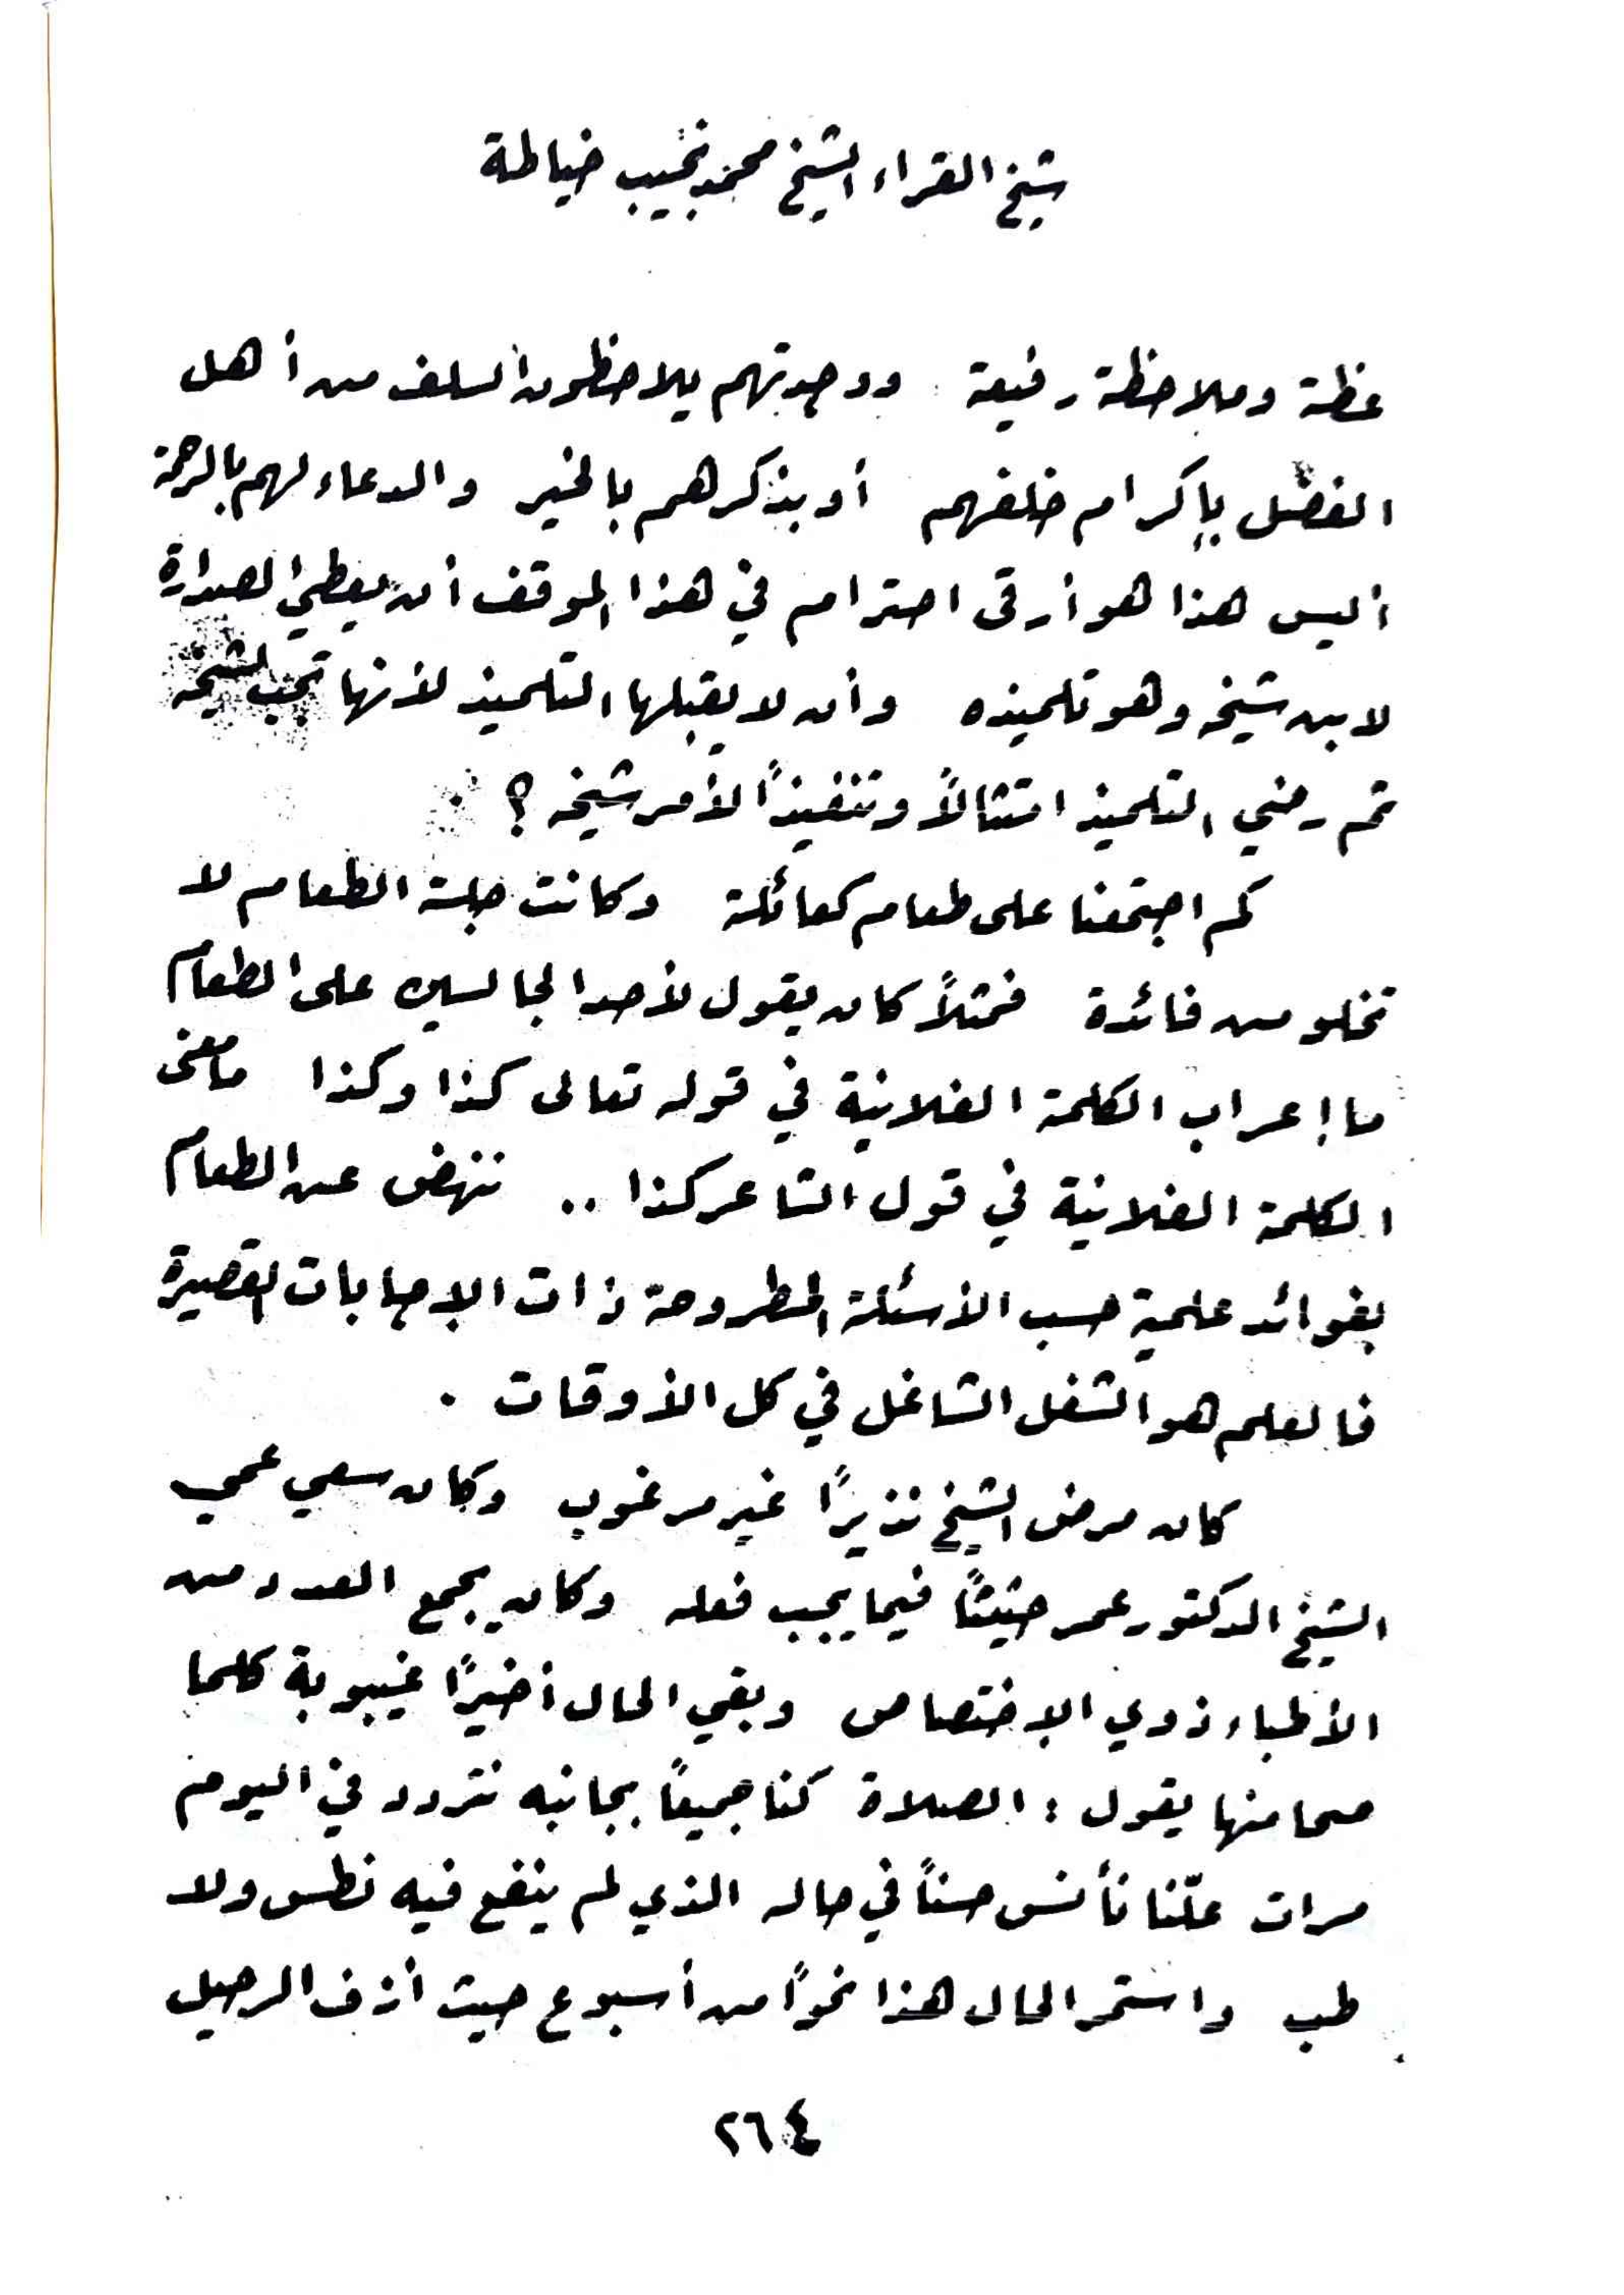 شيخ القراء الشيخ محمد نجيب خياطة
عظة وملاحظة رفيعة ووجدتهم يلاحظون السلف من أهل
الفضل بإكرام خلفهم أو بذكرهم بالخير والدعاء لهم بالرحمة
أليس هذا هو أرقى احترام في هذا الموقف أن يعطي الصدارة
لابن شيخه وهو تلميذه وأن لا يقبلها التلميذ لأنها تجب لشيخه
ثم رضي التلميذ امتثالاً وتنفيذاً لأمر شيخه ؟
كم اجتمعنا على طعام كعائلة وكانت جلسة الطعام لا
تخلو من فائدة فمثلاً كان يقول لأحد الجالسين على الطعام
ما إعراب الكلمة الفلانية في قوله تعالى كذا وكذا ما معنى
الكلمة الفلانية في قول الشاعر كذا .. ننهض عن الطعام
بفوائد علمية حسب الأسئلة المطروحة ذات الإجابات القصيرة
فالعلم هو الشغل الشاغل في كل الأوقات .
كان مرض الشيخ نذيراً غير مرغوب وكان سعي عمي
الشيخ الدكتور عمر حثيثاً فيما يجب فعله وكان يجمع العدد من
الأطباء ذوي الإختصاص وبقي الحال أخيراً غيبوبة كلما
صحا منها يقول : الصلاة كنا جميعاً بجانبه نتردد في اليوم
مرات علّنا نأنس حسناً في حاله الذي لم ينفع فيه نطس ولا
طب واستمر الحال هذا نحواً من أسبوع حيث أزف الرحيل
٢٦٤